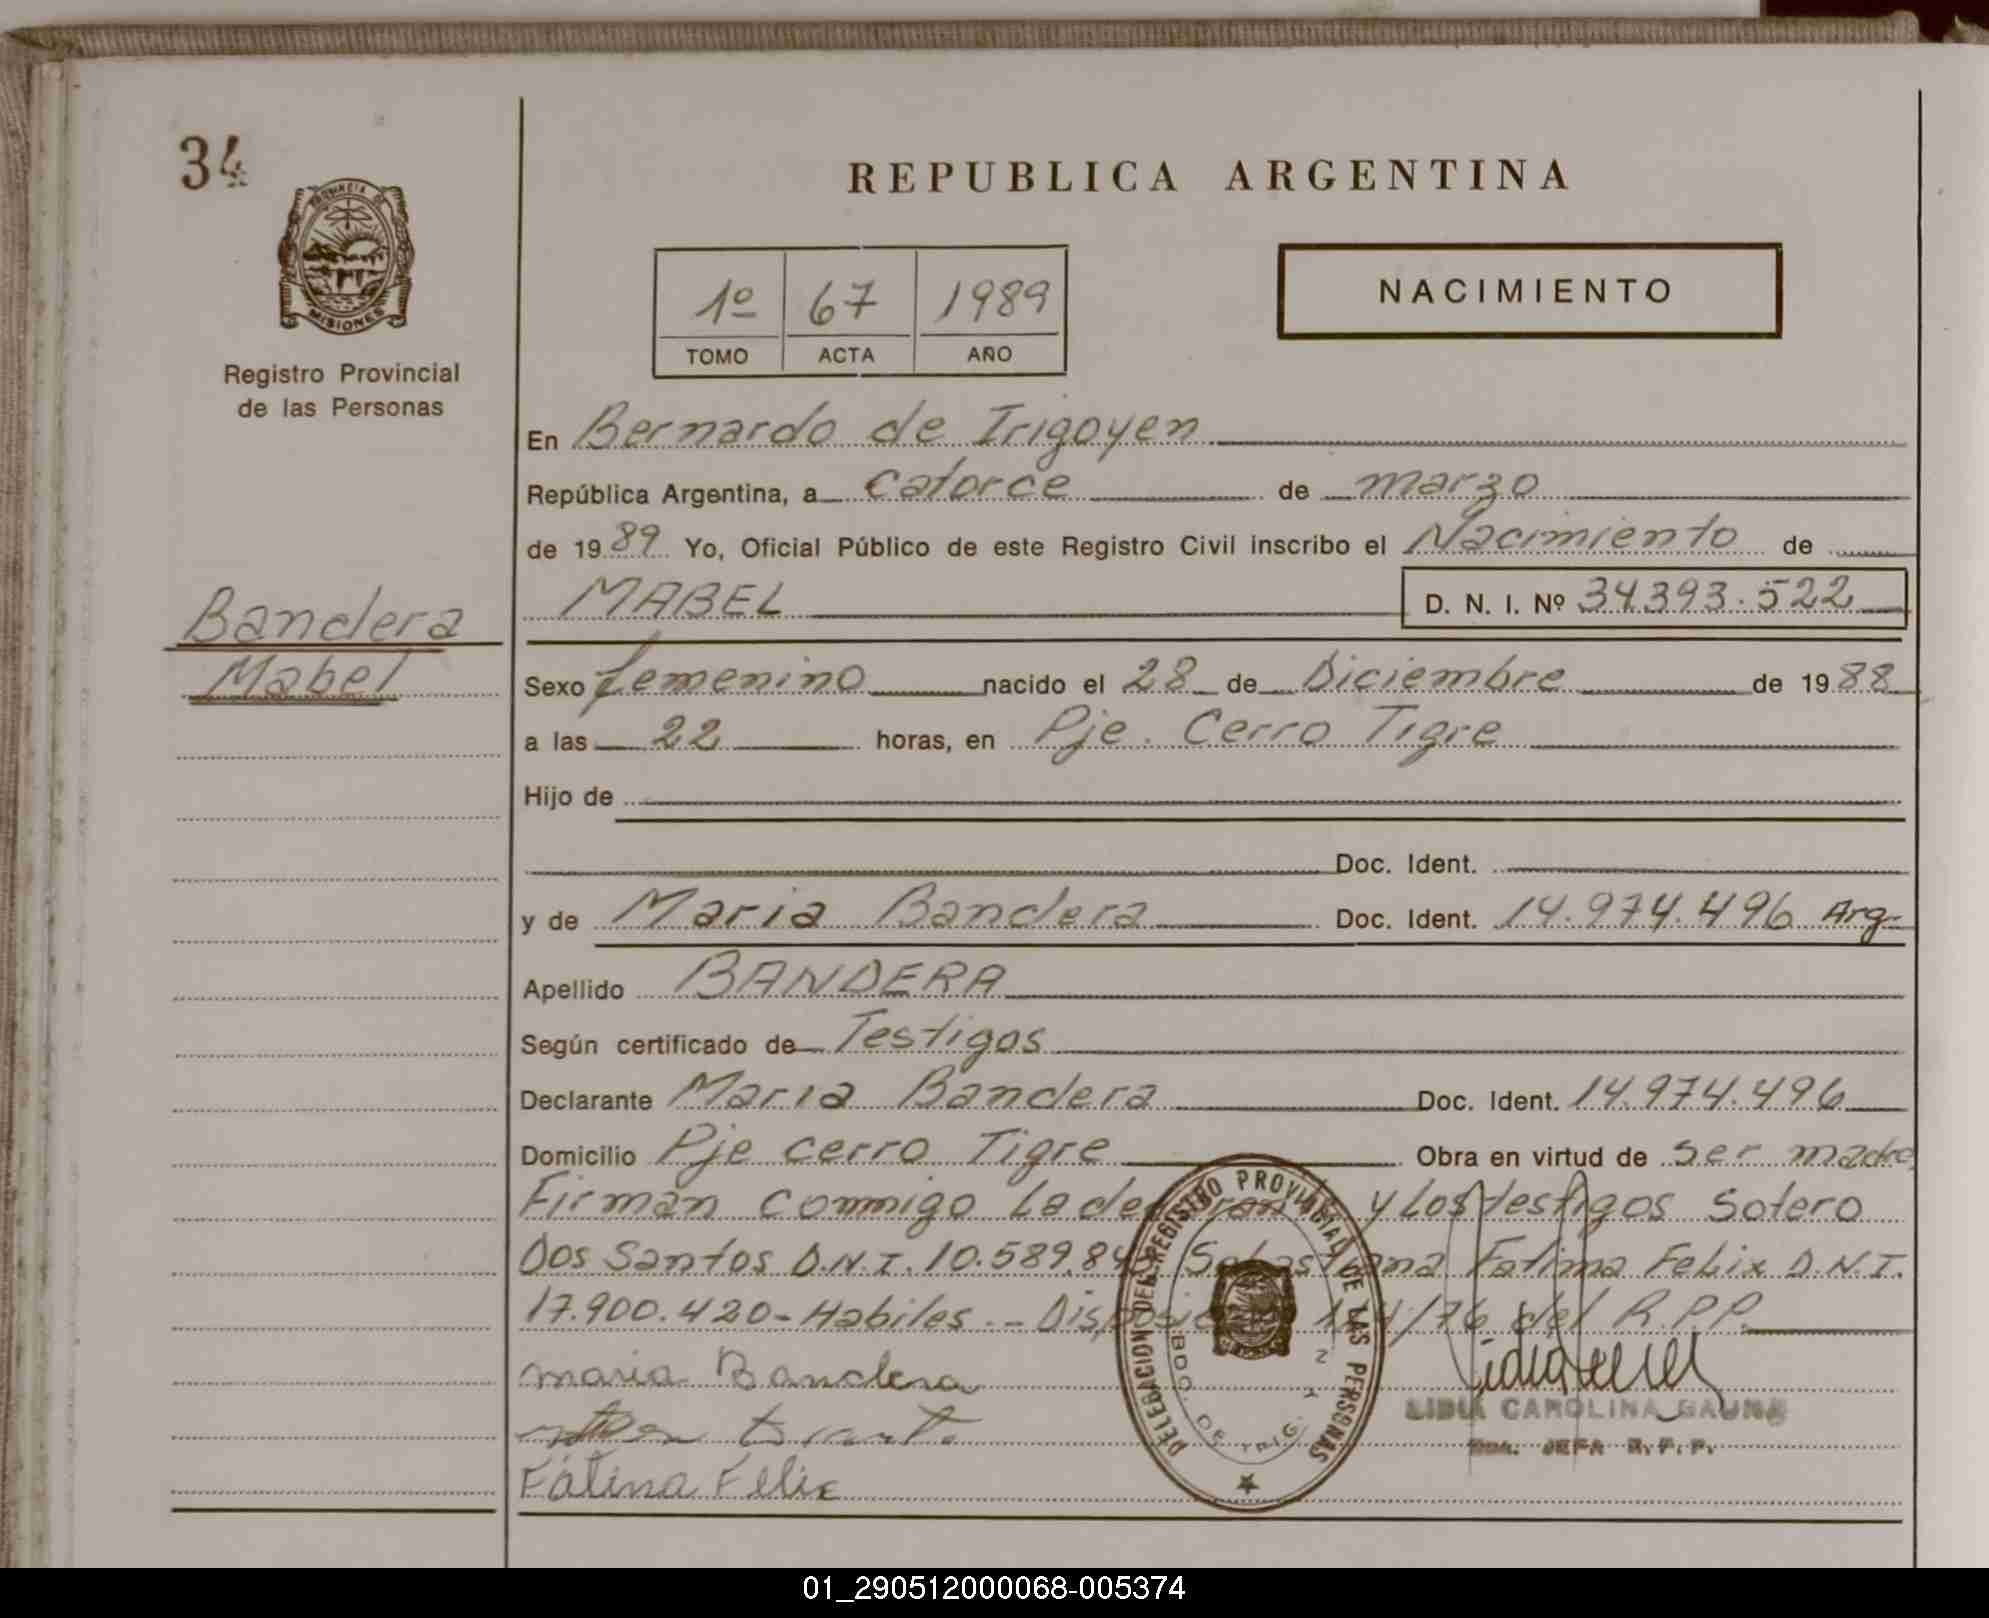 34
PROVINCIA DE
MISIONES
Registro Provincial
de las Personas
Bandera
Mabel
REPUBLICA ARGENTINA
1º 67 1989
TOMO ACTA AÑO
NACIMIENTO
En Bernardo de Irigoyen
República Argentina, a catorce de marzo
de 1989 Yo, Oficial Público de este Registro Civil inscribo el Nacimiento de
MABEL D. N. I. Nº 34393.522
Sexo femenino nacido el 28 de Diciembre de 1988
a las 22 horas, en Pje. Cerro Tigre
Hijo de
Doc. Ident.
y de Maria Bandera Doc. Ident. 14.974.496 Arg.
Apellido BANDERA
Según certificado de Testigos
Declarante Maria Bandera Doc. Ident. 14.974.496
Domicilio Pje cerro Tigre Obra en virtud de ser madre
Firman conmigo La y Los testigos Sotero
Dos Santos D.N.I. 10.589.84 Fatima Felix D.N.I.
17.900.420 - Habiles. - /76 del R.P.P.
maria Bandera
Fátina Felix
DELEGACION DEL REGISTRO PROVINCIAL DE LAS PERSONAS
BDO. DE IRIG.
LIDIA CAROLINA GAUNA
JEFA R.P.P.
01_290512000068-005374